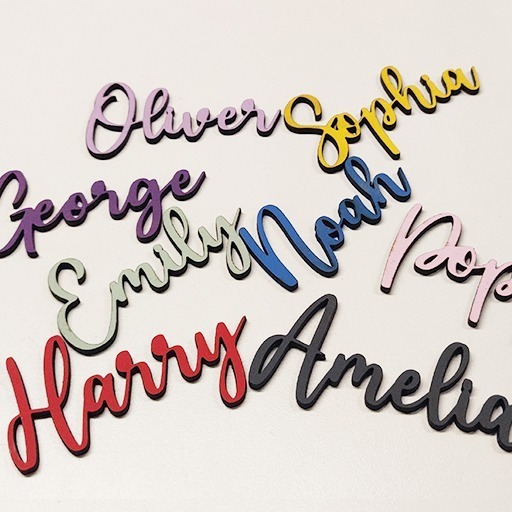 Oliver
Sophia
George
Noah
Emily
Pop
Harry
Amelia